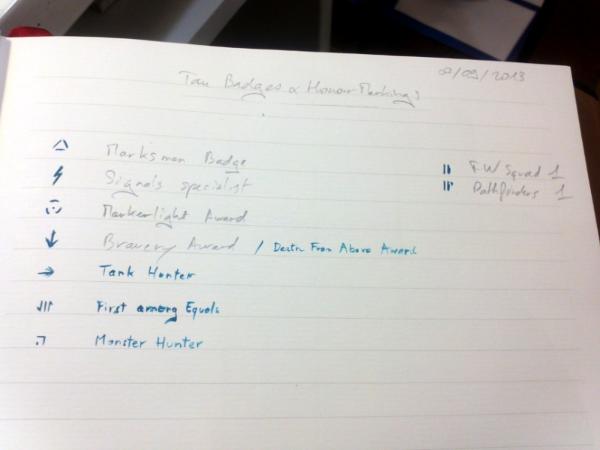 Tau Badges & Honour Markings
09/2013
Marksman Badge
Signals specialist
Markerlight Award
Bravery Award / Death From Above Award
Tank Hunter
First among Equals
Monster Hunter
F.W Squad 1
Pathfinders 1